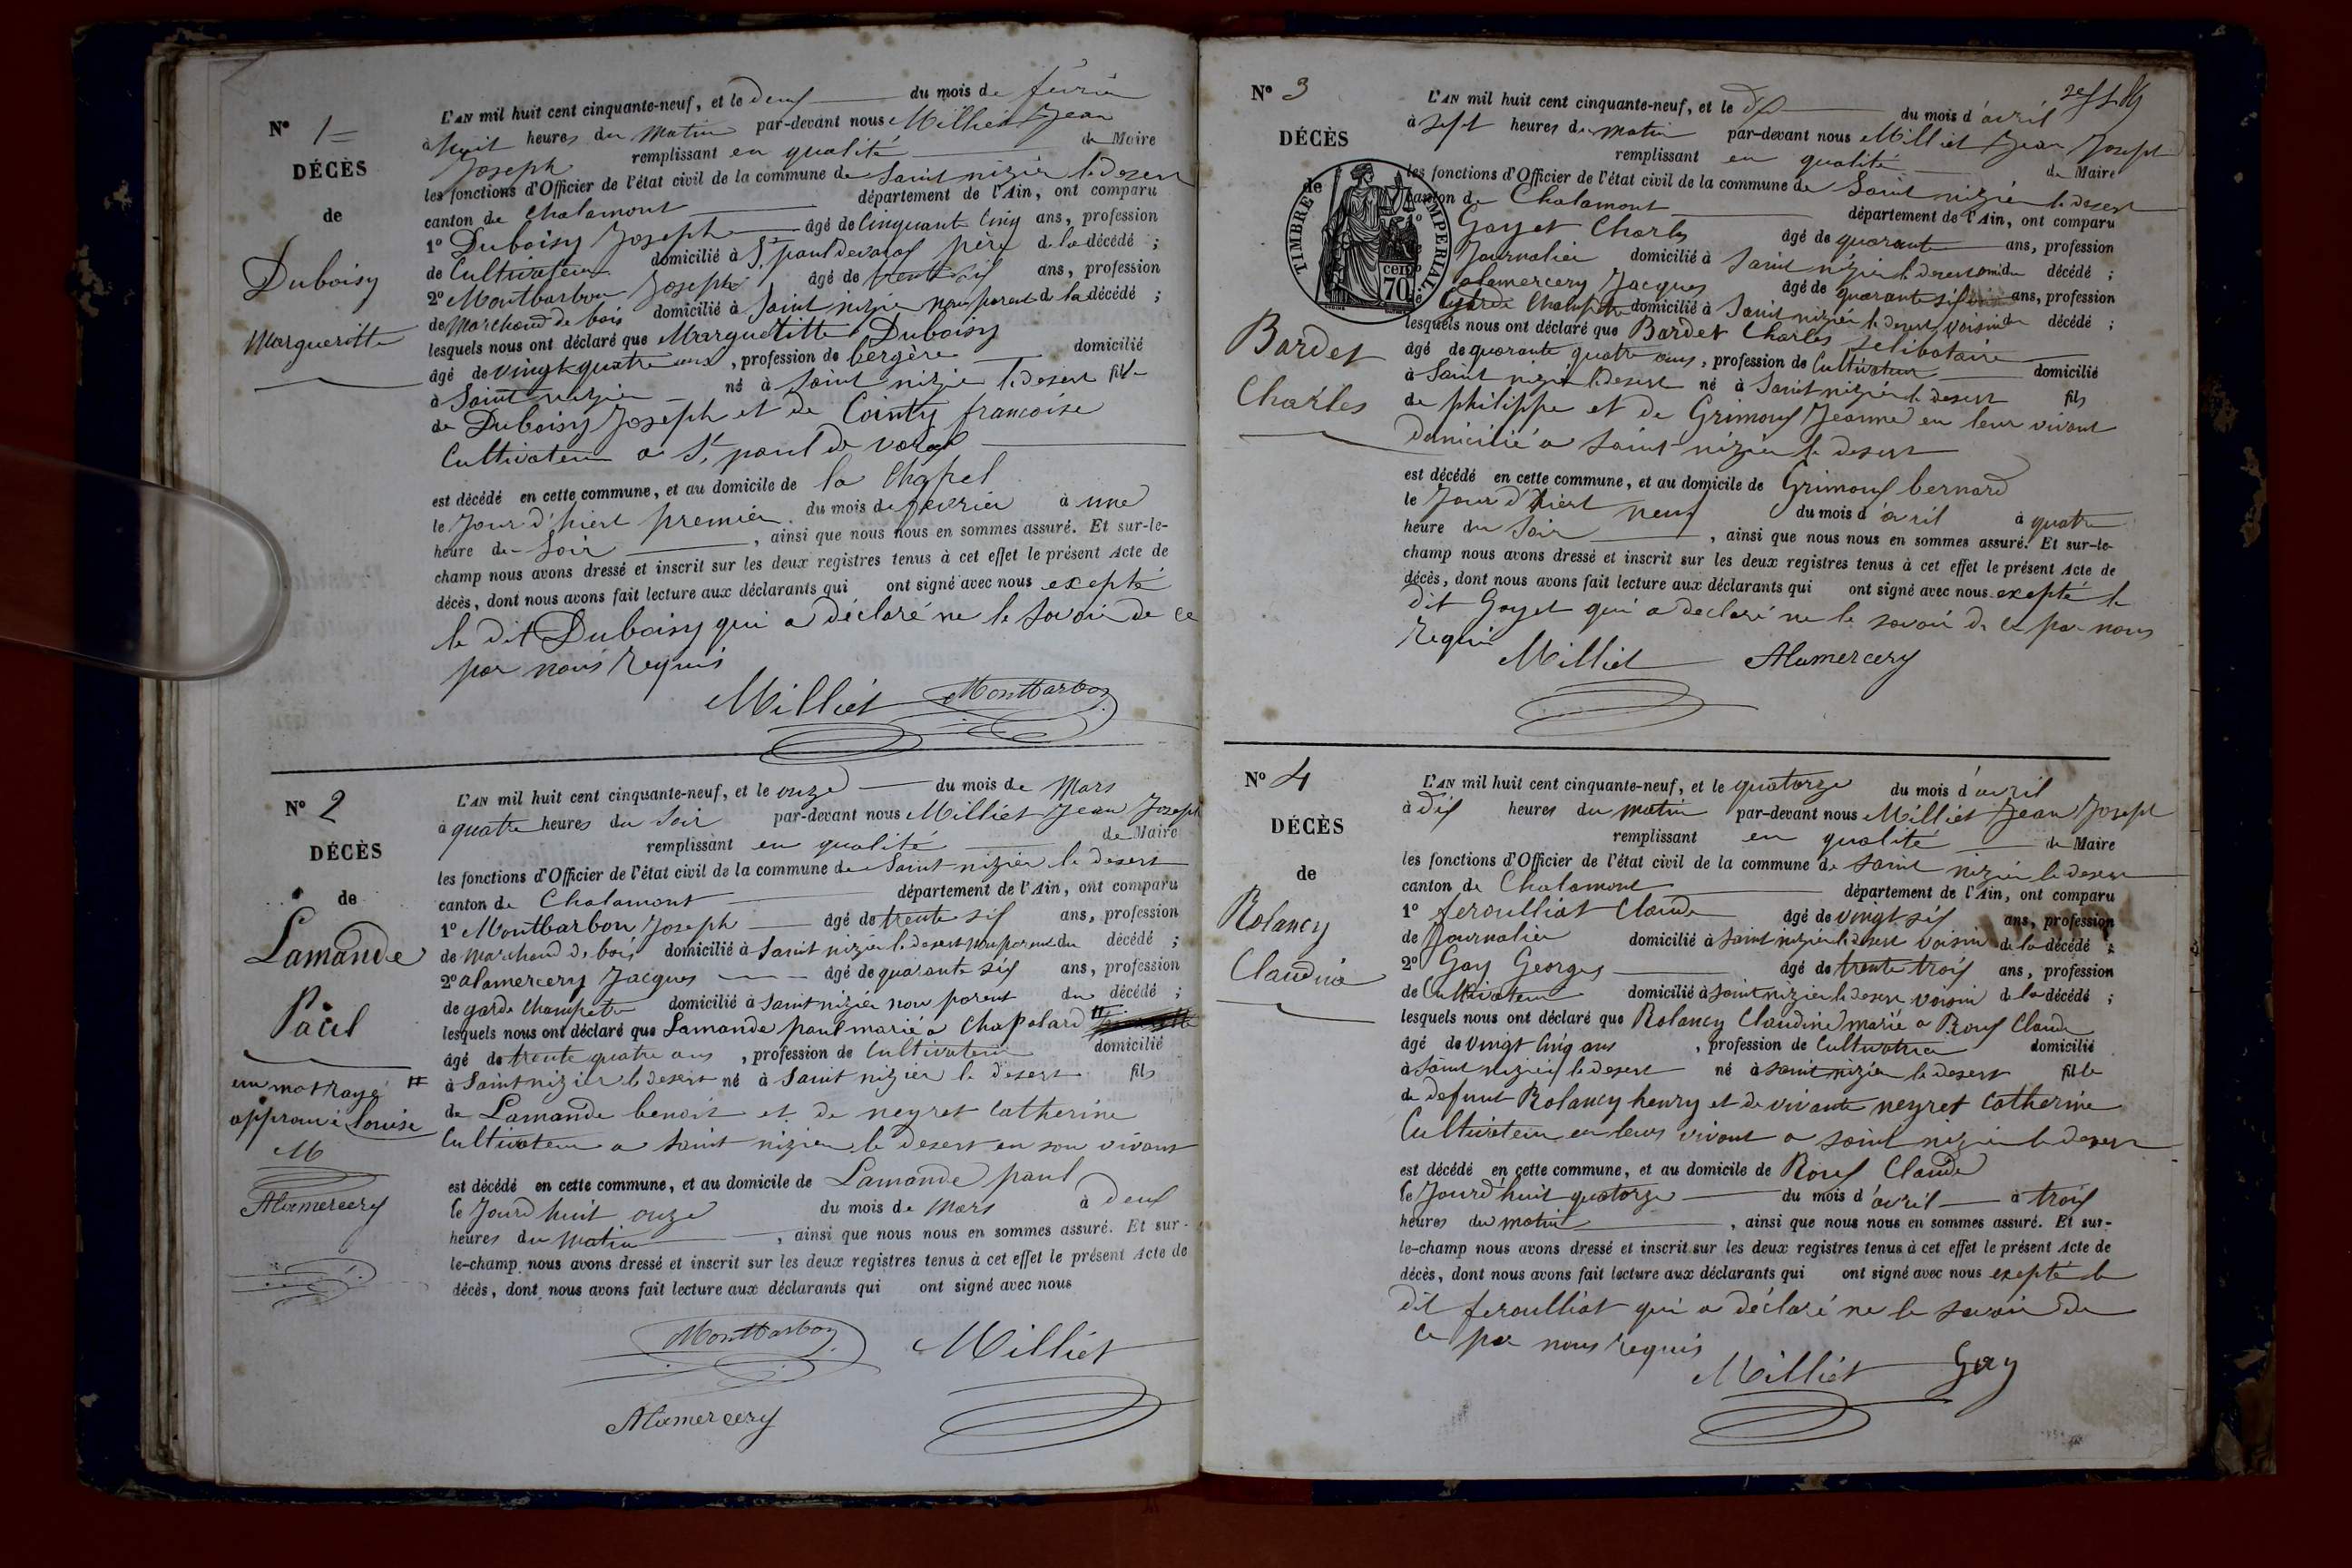 N° 1=
DÉCÈS
de
Duboisy
Margueritte
L'AN mil huit cent cinquante-neuf, et le deux du mois de février
à huit heures du matin par-devant nous Milliet Jean
Joseph remplissant en qualité de Maire
les fonctions d'Officier de l'état civil de la commune de Saint nizier le desert
canton de Chalamont département de l'Ain, ont comparu
1° Duboisy Joseph âgé de Cinquante Cinq ans, profession
de Cultivateur domicilié à St paul de varax père de la décédé ;
2° Montbarbon Joseph âgé de trente six ans, profession
de Marchand de bois domicilié à Saint nizier non parent de la décédé ;
lesquels nous ont déclaré que Margueritte Duboisy
âgé de vingt quatre ans, profession de bergère domicilié
à Saint nizier né à Saint nizier le desert fille
de Duboisy Joseph et de Cointy francoise
Cultivateur a St paul de varax
est décédé en cette commune, et au domicile de la Chapel
le Jour d'hiert premier du mois de fevrier à une
heure du Soir, ainsi que nous nous en sommes assuré. Et sur-le-
champ nous avons dressé et inscrit sur les deux registres tenus à cet effet le présent Acte de
décès, dont nous avons fait lecture aux déclarants qui ont signé avec nous exepté
le dit Duboisy qui a déclaré ne le savoir de ce
par nous requis
Milliet Montbarbon
N° 2
DÉCÈS
de
Lamande
Paul
un mot rayé #
approuvé Louise
M
Alamercery
L'AN mil huit cent cinquante-neuf, et le onze du mois de Mars
à quatre heures du Soir par-devant nous Milliet Jean Joseph
remplissant en qualité de Maire
les fonctions d'Officier de l'état civil de la commune de Saint nizier le desert
canton de Chalamont département de l'Ain, ont comparu
1° Montbarbon Joseph âgé de trente six ans, profession
de Marchand de bois domicilié à Saint nizier le desert non parent du décédé ;
2° alamercery Jacques âgé de quarante six ans, profession
de garde Champetre domicilié à Saint nizier non parent du décédé ;
lesquels nous ont déclaré que Lamande paul marié a Chapolard #
âgé de trente quatre ans, profession de Cultivateur domicilié
à Saint nizier le desert né à Saint nizier le desert fils
de Lamande benoit et de neyret Catherine
Cultivateur a Saint nizier le desert en son vivant
est décédé en cette commune, et au domicile de Lamande paul
le Jourd huit onze du mois de Mars à deux
heures du Matin, ainsi que nous nous en sommes assuré. Et sur-
le-champ nous avons dressé et inscrit sur les deux registres tenus à cet effet le présent Acte de
décès, dont nous avons fait lecture aux déclarants qui ont signé avec nous
Montbarbon Milliet
Alamercery
N° 3
DÉCÈS
de
TIMBRE IMPERIAL
70 cent
Bardet
Charles
L'AN mil huit cent cinquante-neuf, et le dix du mois d'avril
à sept heures du matin par-devant nous Milliet Jean Joseph
remplissant en qualité de Maire
les fonctions d'Officier de l'état civil de la commune de Saint nizier le desert
canton de Chalamont département de l'Ain, ont comparu
Gayet Charles âgé de quarante ans, profession
Journalier domicilié à Saint nizier le desert ami du décédé ;
alamercery Jacques âgé de quarante six ans, profession
Garde Champetre domicilié à Saint nizier le desert voisin du décédé ;
lesquels nous ont déclaré que Bardet Charles selibataire
âgé de quarante quatre ans, profession de Cultivateur domicilié
à Saint nizier le desert né à Saint nizier le desert fils
de philippe et de Grimoux Jeanne en leur vivant
domicilié a Saint nizier le desert
est décédé en cette commune, et au domicile de Grimoux bernard
le Jour d'hiert neuf du mois d'avril à quatre
heure du Soir, ainsi que nous nous en sommes assuré. Et sur-le-
champ nous avons dressé et inscrit sur les deux registres tenus à cet effet le présent Acte de
décès, dont nous avons fait lecture aux déclarants qui ont signé avec nous exepté le
dit Gayet qui a declaré ne le savoir de ce par nous
requi
Milliet Alamercery
N° 4
DÉCÈS
de
Rolancy
Claudine
L'AN mil huit cent cinquante-neuf, et le quatorze du mois d'avril
à dix heures du matin par-devant nous Milliet Jean Joseph
remplissant en qualité de Maire
les fonctions d'Officier de l'état civil de la commune de Saint nizier le desert
canton de Chalamont département de l'Ain, ont comparu
1° feroulliat Claude âgé de vingt six ans, profession
de Journalier domicilié à Saint nizier le desert voisin de la décédé ;
2° Gay Georges âgé de trente trois ans, profession
de Cultivateur domicilié à Saint nizier le desert voisin de la décédé ;
lesquels nous ont déclaré que Rolancy Claudine marié a Roux Claude
âgé de vingt Cinq ans, profession de Cultivatrice domicilié
à Saint nizier le desert né à Saint nizier le desert fille
de defunt Rolancy henry et de vivante neyret Catherine
Cultivateur en leurs vivant a Saint nizier le desert
est décédé en cette commune, et au domicile de Roux Claude
le Jourd'huit quatorze du mois d'avril à trois
heures du matin, ainsi que nous nous en sommes assuré. Et sur-
le-champ nous avons dressé et inscrit sur les deux registres tenus à cet effet le présent Acte de
décès, dont nous avons fait lecture aux déclarants qui ont signé avec nous exepté le
dit feroulliat qui a déclaré ne le savoir de
ce par nous requis
Milliet Gay